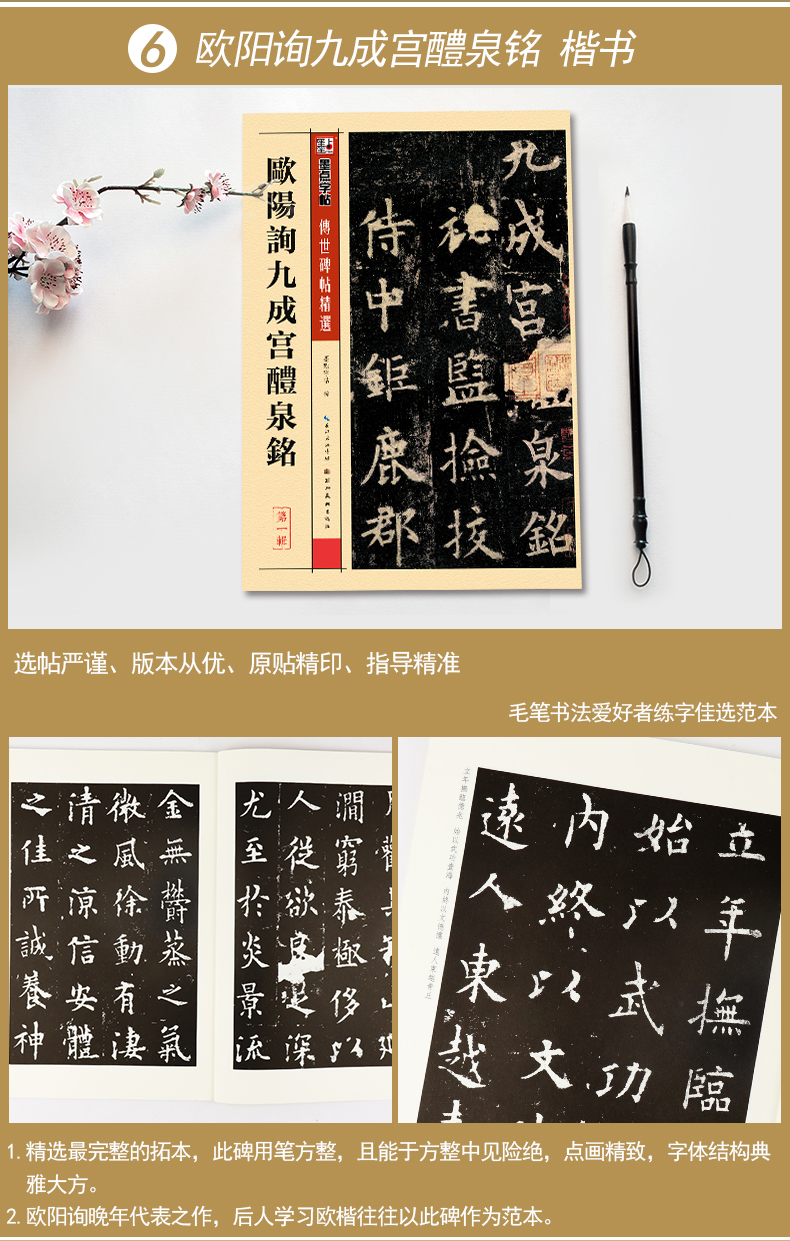 6 欧阳询九成宫醴泉铭 楷书
歐陽詢九成宫醴泉銘
第一輯
墨点字帖
傳世碑帖精選
九成宫醴泉銘
祕書監撿挍
侍中鉅鹿郡
选帖严谨、版本从优、原贴精印、指导精准
毛笔书法爱好者练字佳选范本
澗窮泰極侈以
人從欲良足深
尤至於炎景流
金無欝蒸之氣
微風徐動有凄
清之凉信安體
之佳所誠養神
立年撫臨
始以武功
内終以文
遠人東越
立年撫臨億兆 始以武功壹海 内終以文德懷 遠人東越青丘
1. 精选最完整的拓本，此碑用笔方整，且能于方整中见险绝，点画精致，字体结构典
雅大方。
2. 欧阳询晚年代表之作，后人学习欧楷往往以此碑作为范本。